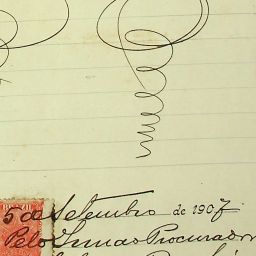 5 de Setembro de 1907
Pelo Irmão Procurador